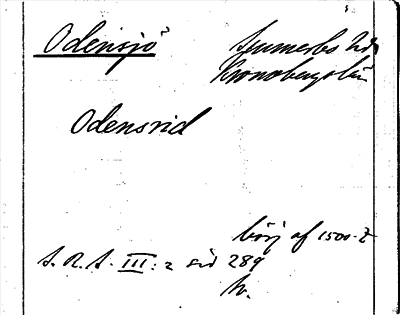 Odensjö Sunnerbo hd
Kronobergs län
Odensrid
börj af 1500-t
S. R. S. III: 2 sid 289